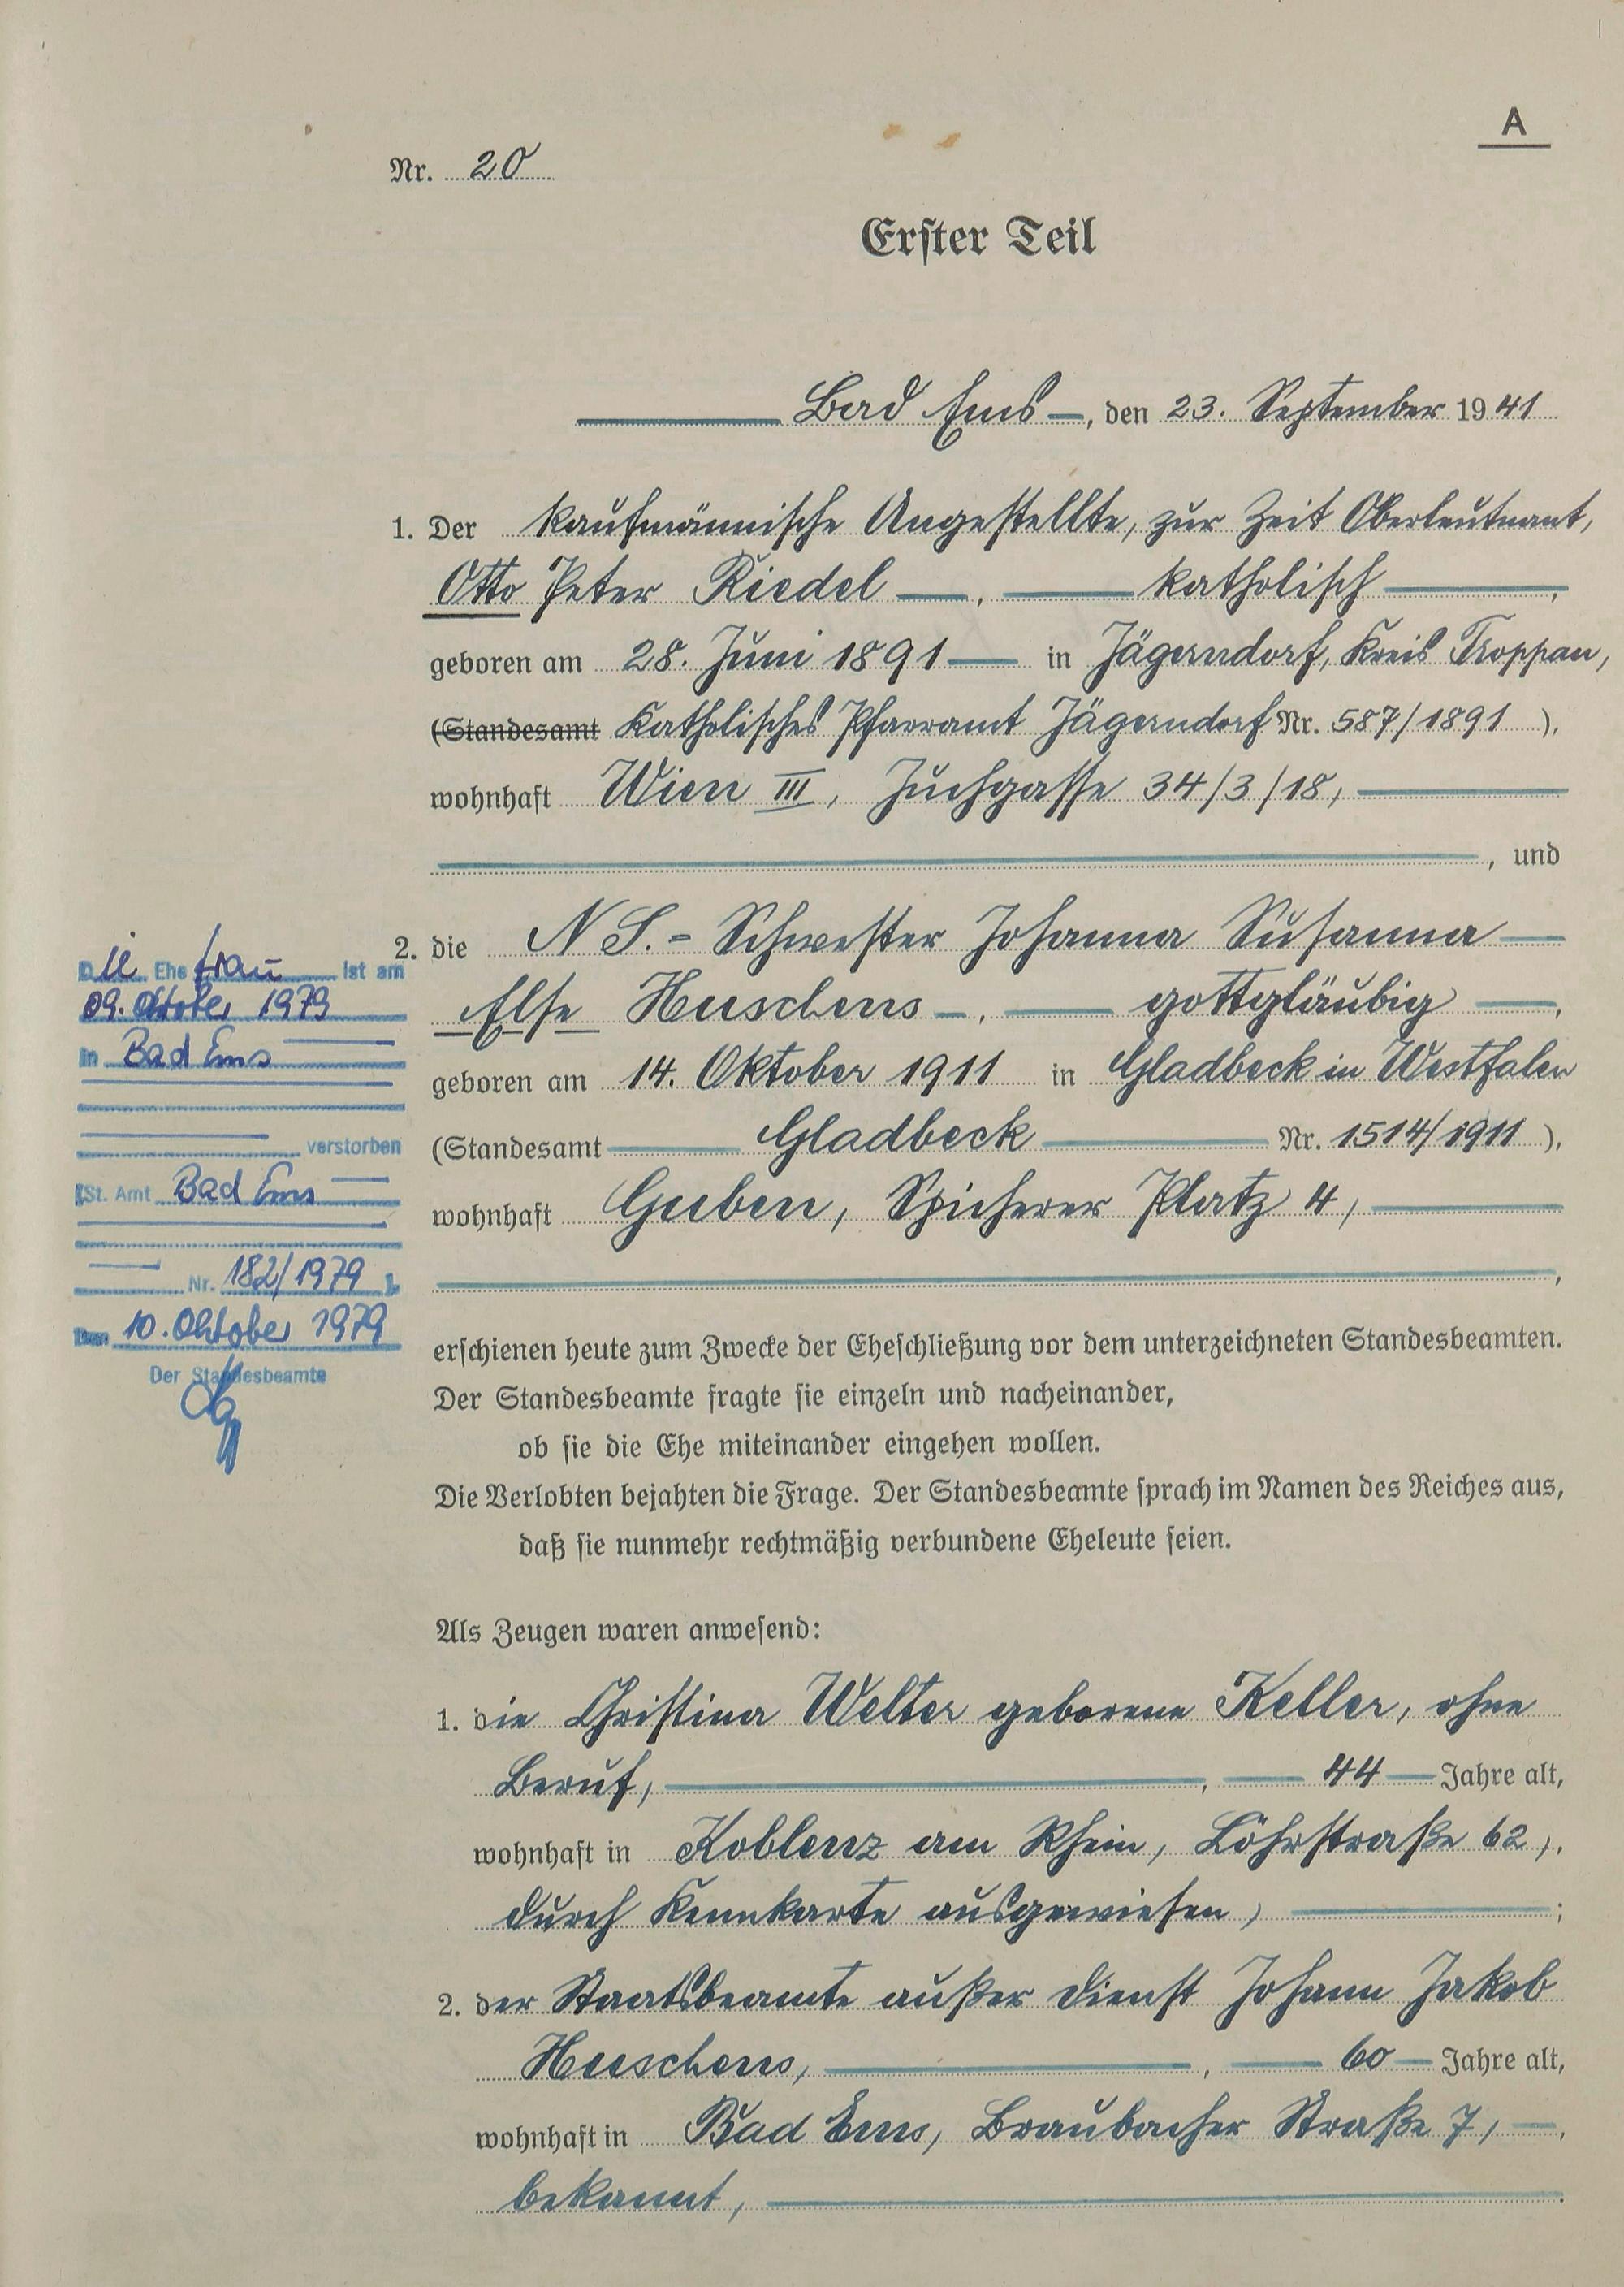 A
Nr. 20
Erster Teil
Bad Ems, den 23. September 1941
1. Der kaufmännische Angestellte, zur Zeit Oberleutnant,
Otto Peter Riedel, katholisch,
geboren am 28. Juni 1891 in Jägerndorf, Kreis Troppau,
(Standesamt Katholisches Pfarramt Jägerndorf Nr. 587/1891),
wohnhaft Wien III, Juchgasse 34/3/18,
, und
2. die N S.-Schwester Johanna Susanna
Else Heuschens, gottgläubig,
geboren am 14. Oktober 1911 in Gladbeck in Westfalen
(Standesamt Gladbeck Nr. 1514/1911),
wohnhaft Guben, Spicherer Platz 4,
,
erschienen heute zum Zwecke der Eheschließung vor dem unterzeichneten Standesbeamten.
Der Standesbeamte fragte sie einzeln und nacheinander,
ob sie die Ehe miteinander eingehen wollen.
Die Verlobten bejahten die Frage. Der Standesbeamte sprach im Namen des Reiches aus,
daß sie nunmehr rechtmäßig verbundene Eheleute seien.
Als Zeugen waren anwesend:
1. die Christina Welter geborene Keller, ohne
Beruf, , 44 Jahre alt,
wohnhaft in Koblenz am Rhein, Löhrstraße 62,,
durch Kennkarte ausgewiesen, ;
2. der Staatsbeamte außer Dienst Johann Jakob
Heuschens, , 60 Jahre alt,
wohnhaft in Bad Ems, Braubacher Straße 7, ,
bekannt, .
Die Ehefrau ist am
09. Oktober 1979
in Bad Ems
verstorben
(St. Amt Bad Ems
Nr. 182/1979).
Den 10. Oktober 1979
Der Standesbeamte